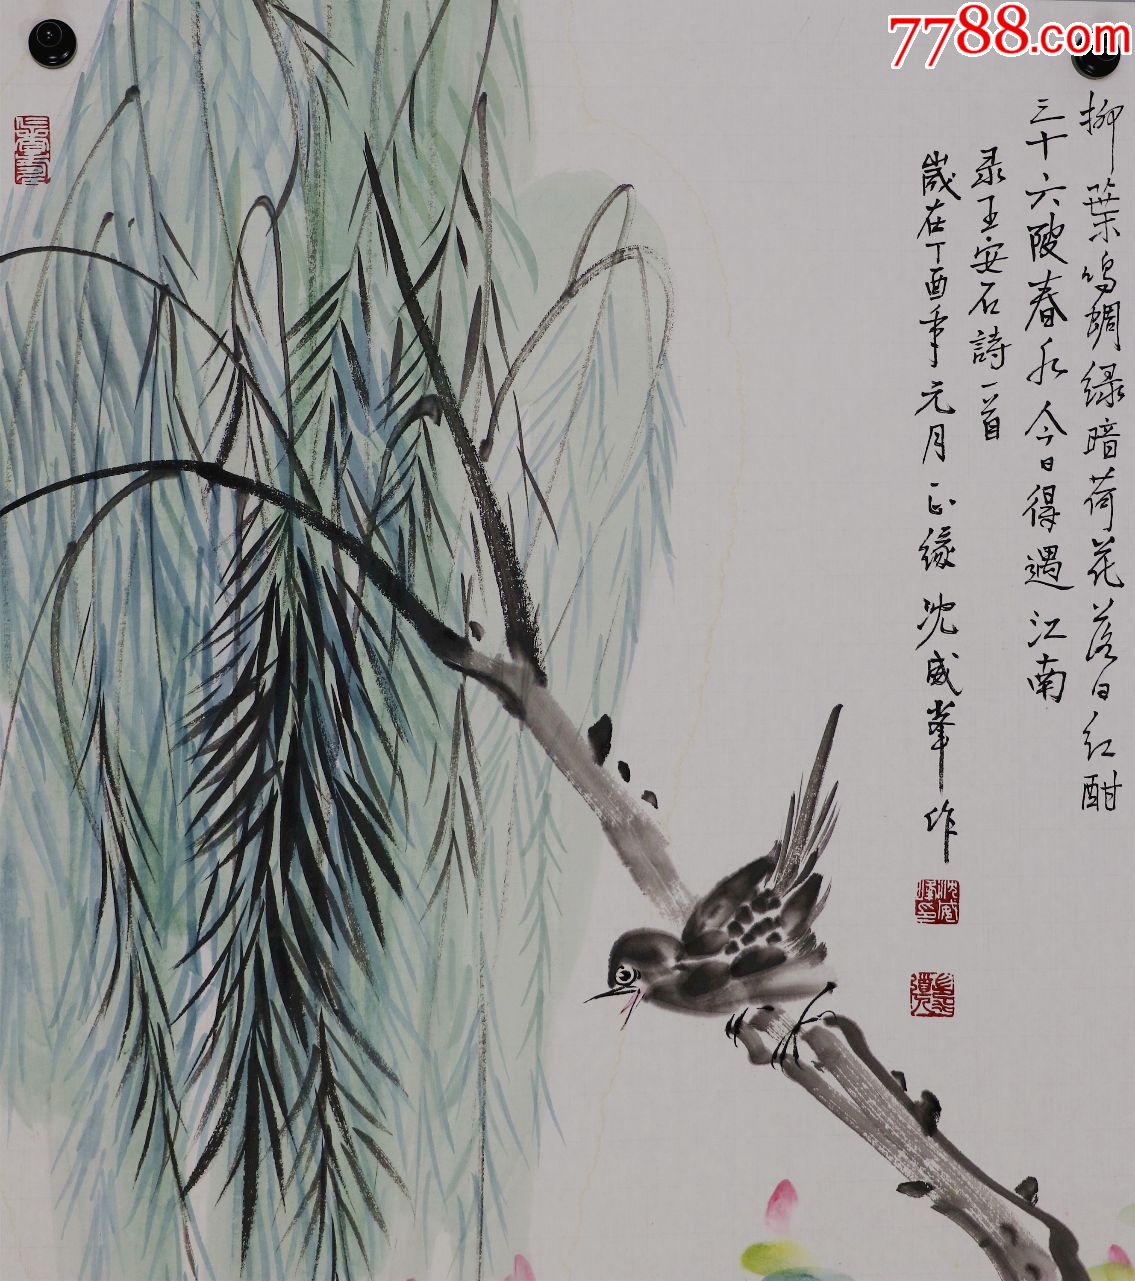 7788.com
柳葉鳴蜩绿暗荷花落日红酣
三十六陂春水今日得遇江南
录王安石詩一首
歲在丁酉年元月正缘沈威峯作